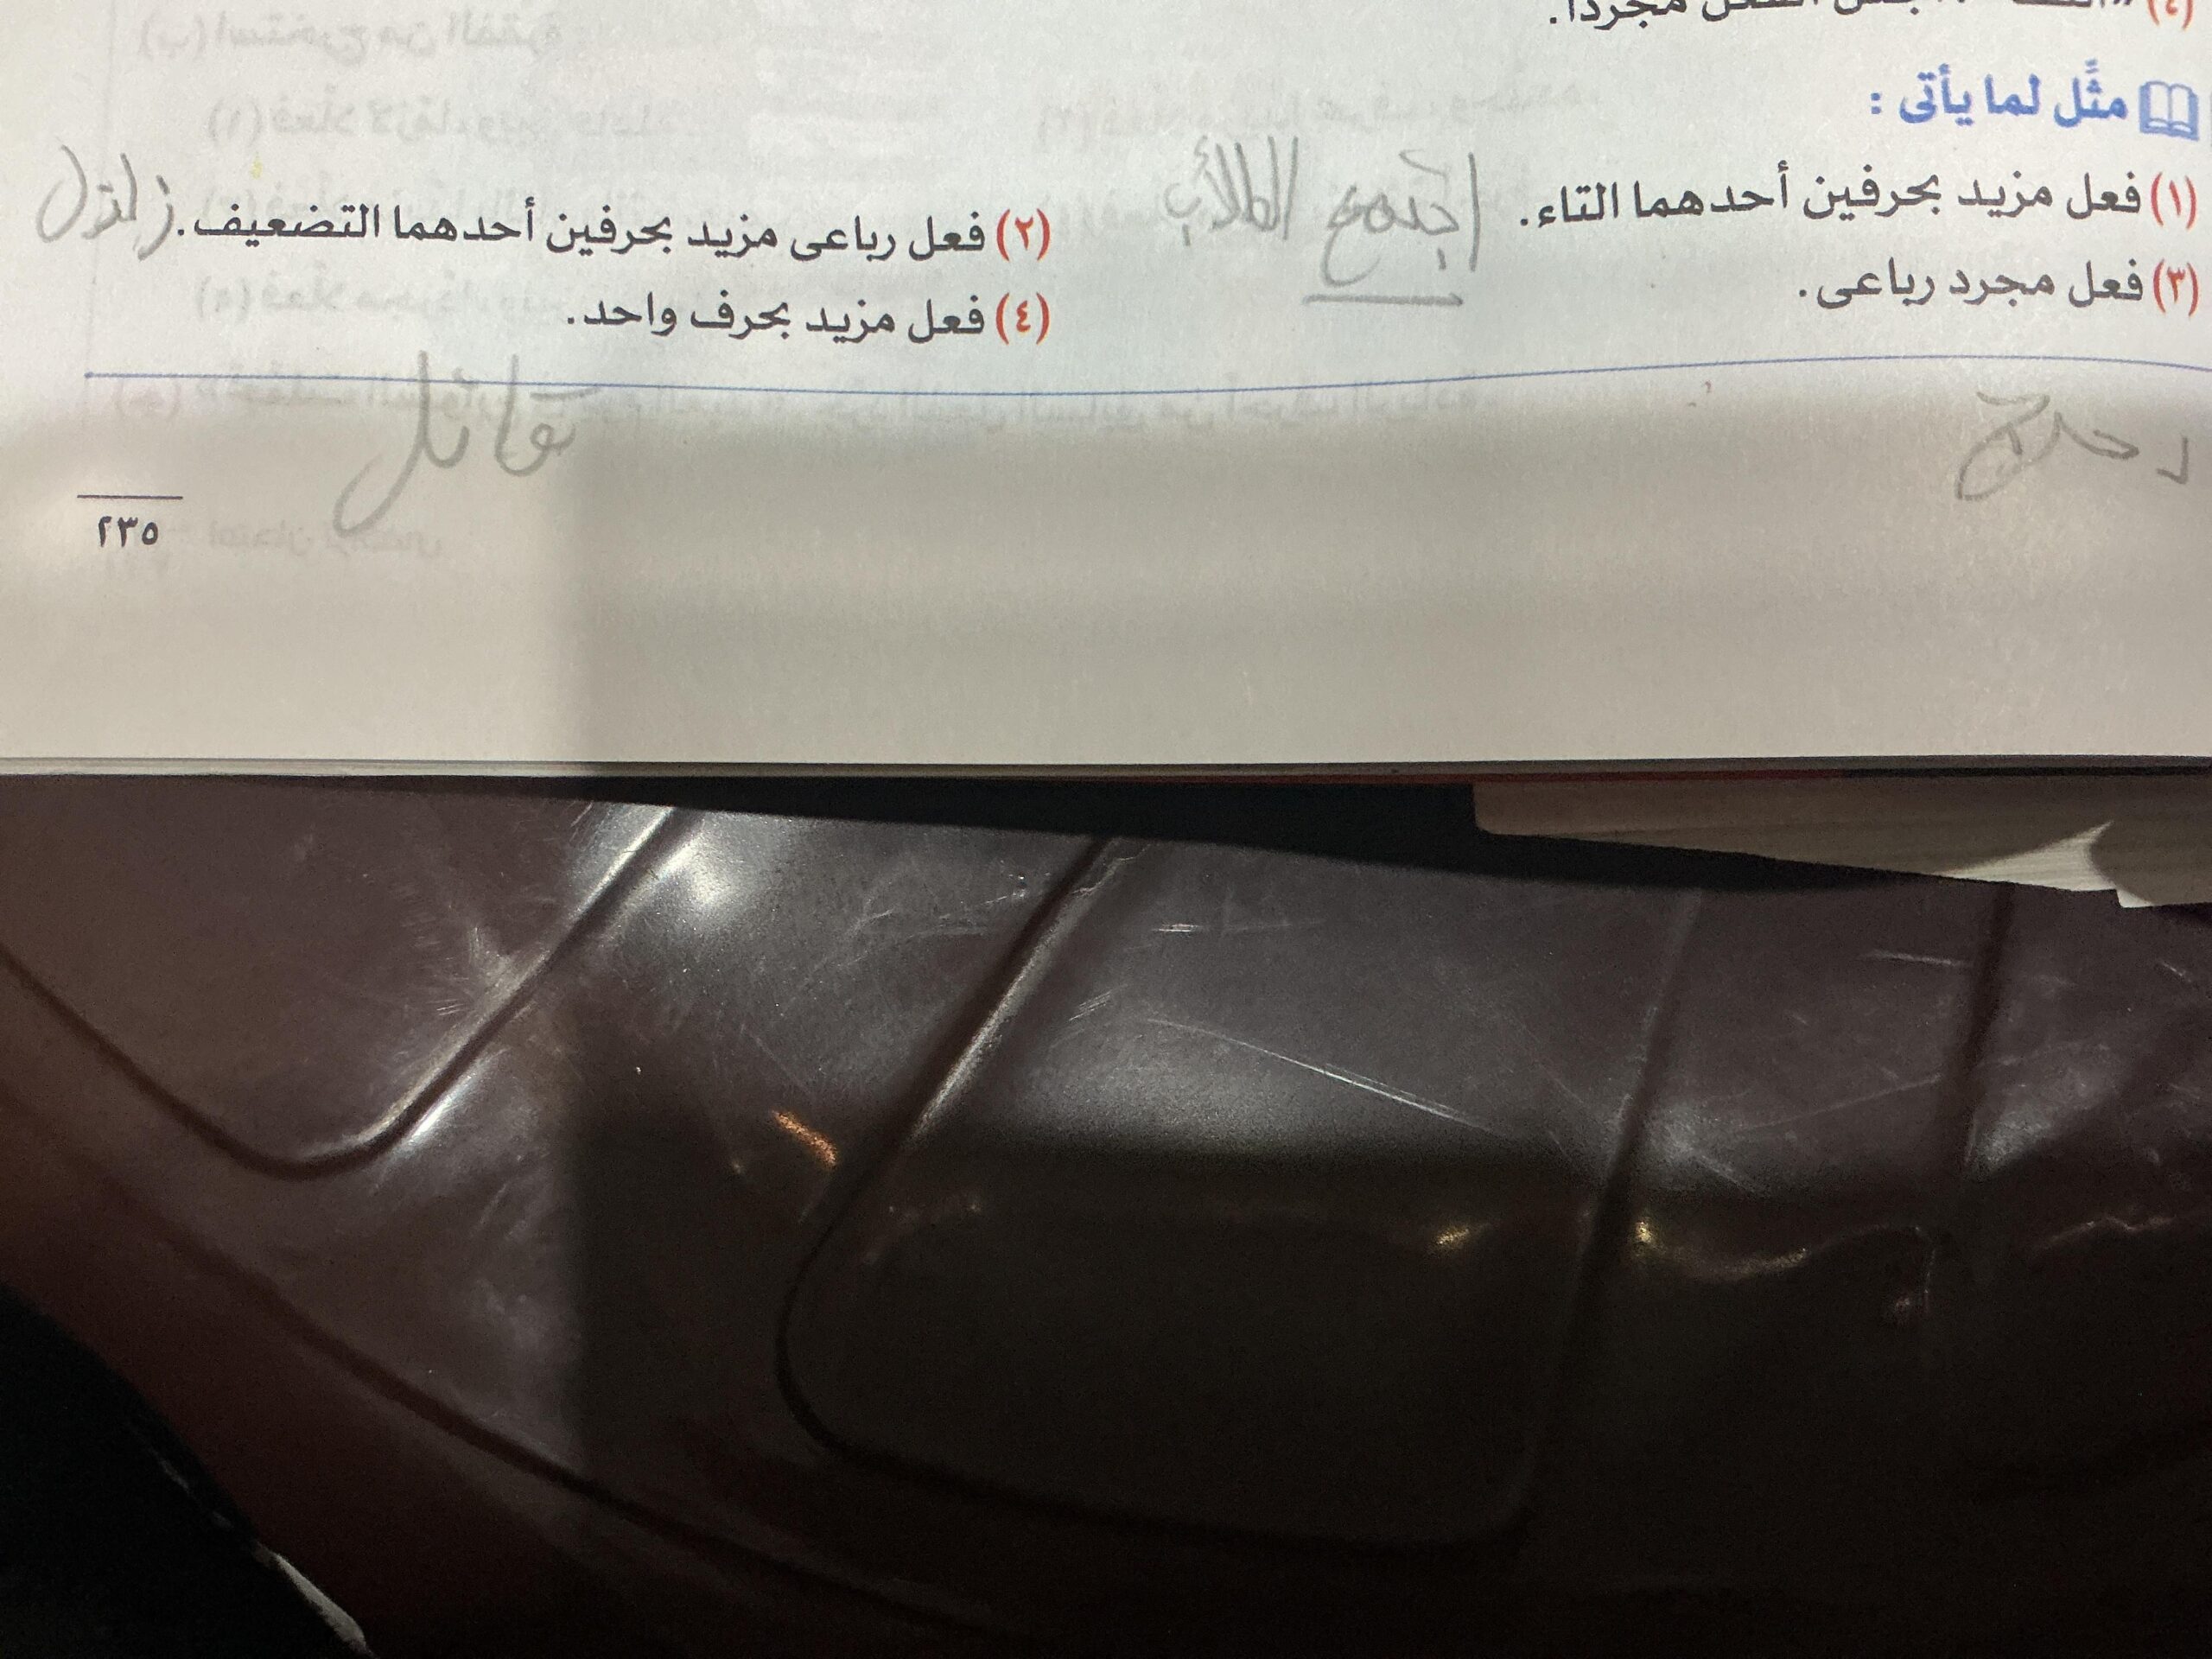 مجردًا.
مثِّل لما يأتى :
(١) فعل مزيد بحرفين أحدهما التاء. اجتمع الطلاب
(٢) فعل رباعى مزيد بحرفين أحدهما التضعيف. زلزل
(٣) فعل مجرد رباعى.
(٤) فعل مزيد بحرف واحد.
دحرج
٢٣٥